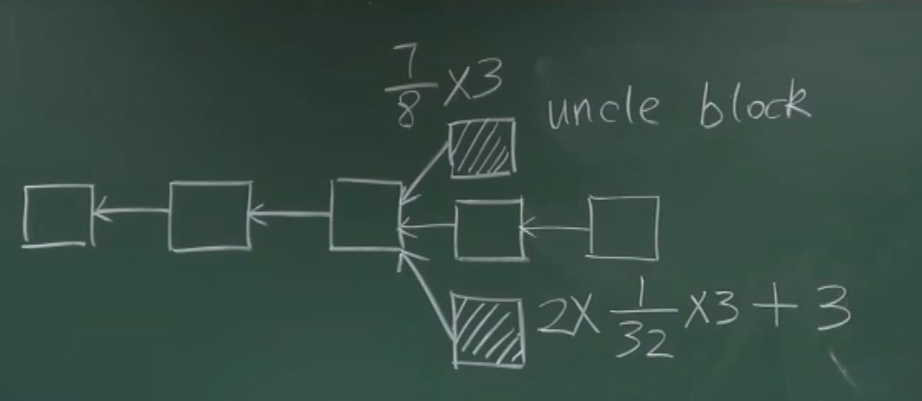 7/8 ×3
uncle block
2× 1/32 ×3+3